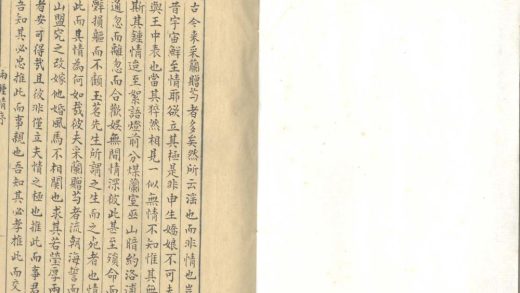 古今來采蘭贈芍者多矣然所云淫也而非情也豈
昔宇宙鮮至情耶欲立其極是非申生嬌娘不可夫
與王中表也當其猝然相見一似無情不知惟其無
斯其鍾情造至絮語燈前分煤蘭室巫山暗約洛浦
通忽而離忽而合歡娛無間情深彼此甚至殞命而
斃損軀而不顧玉茗先生所謂之生而之死者也情
此而其情為何如哉彼夫采蘭贈芍者流朝海誓而
山盟究之改嫁他婚風馬不相關也求其若瑩厚兩
者安可得哉且彼非僅立夫情之極也推此而事君
吾知其必忠推此而事親也吾知其必孝推此而交
兩鍾情序